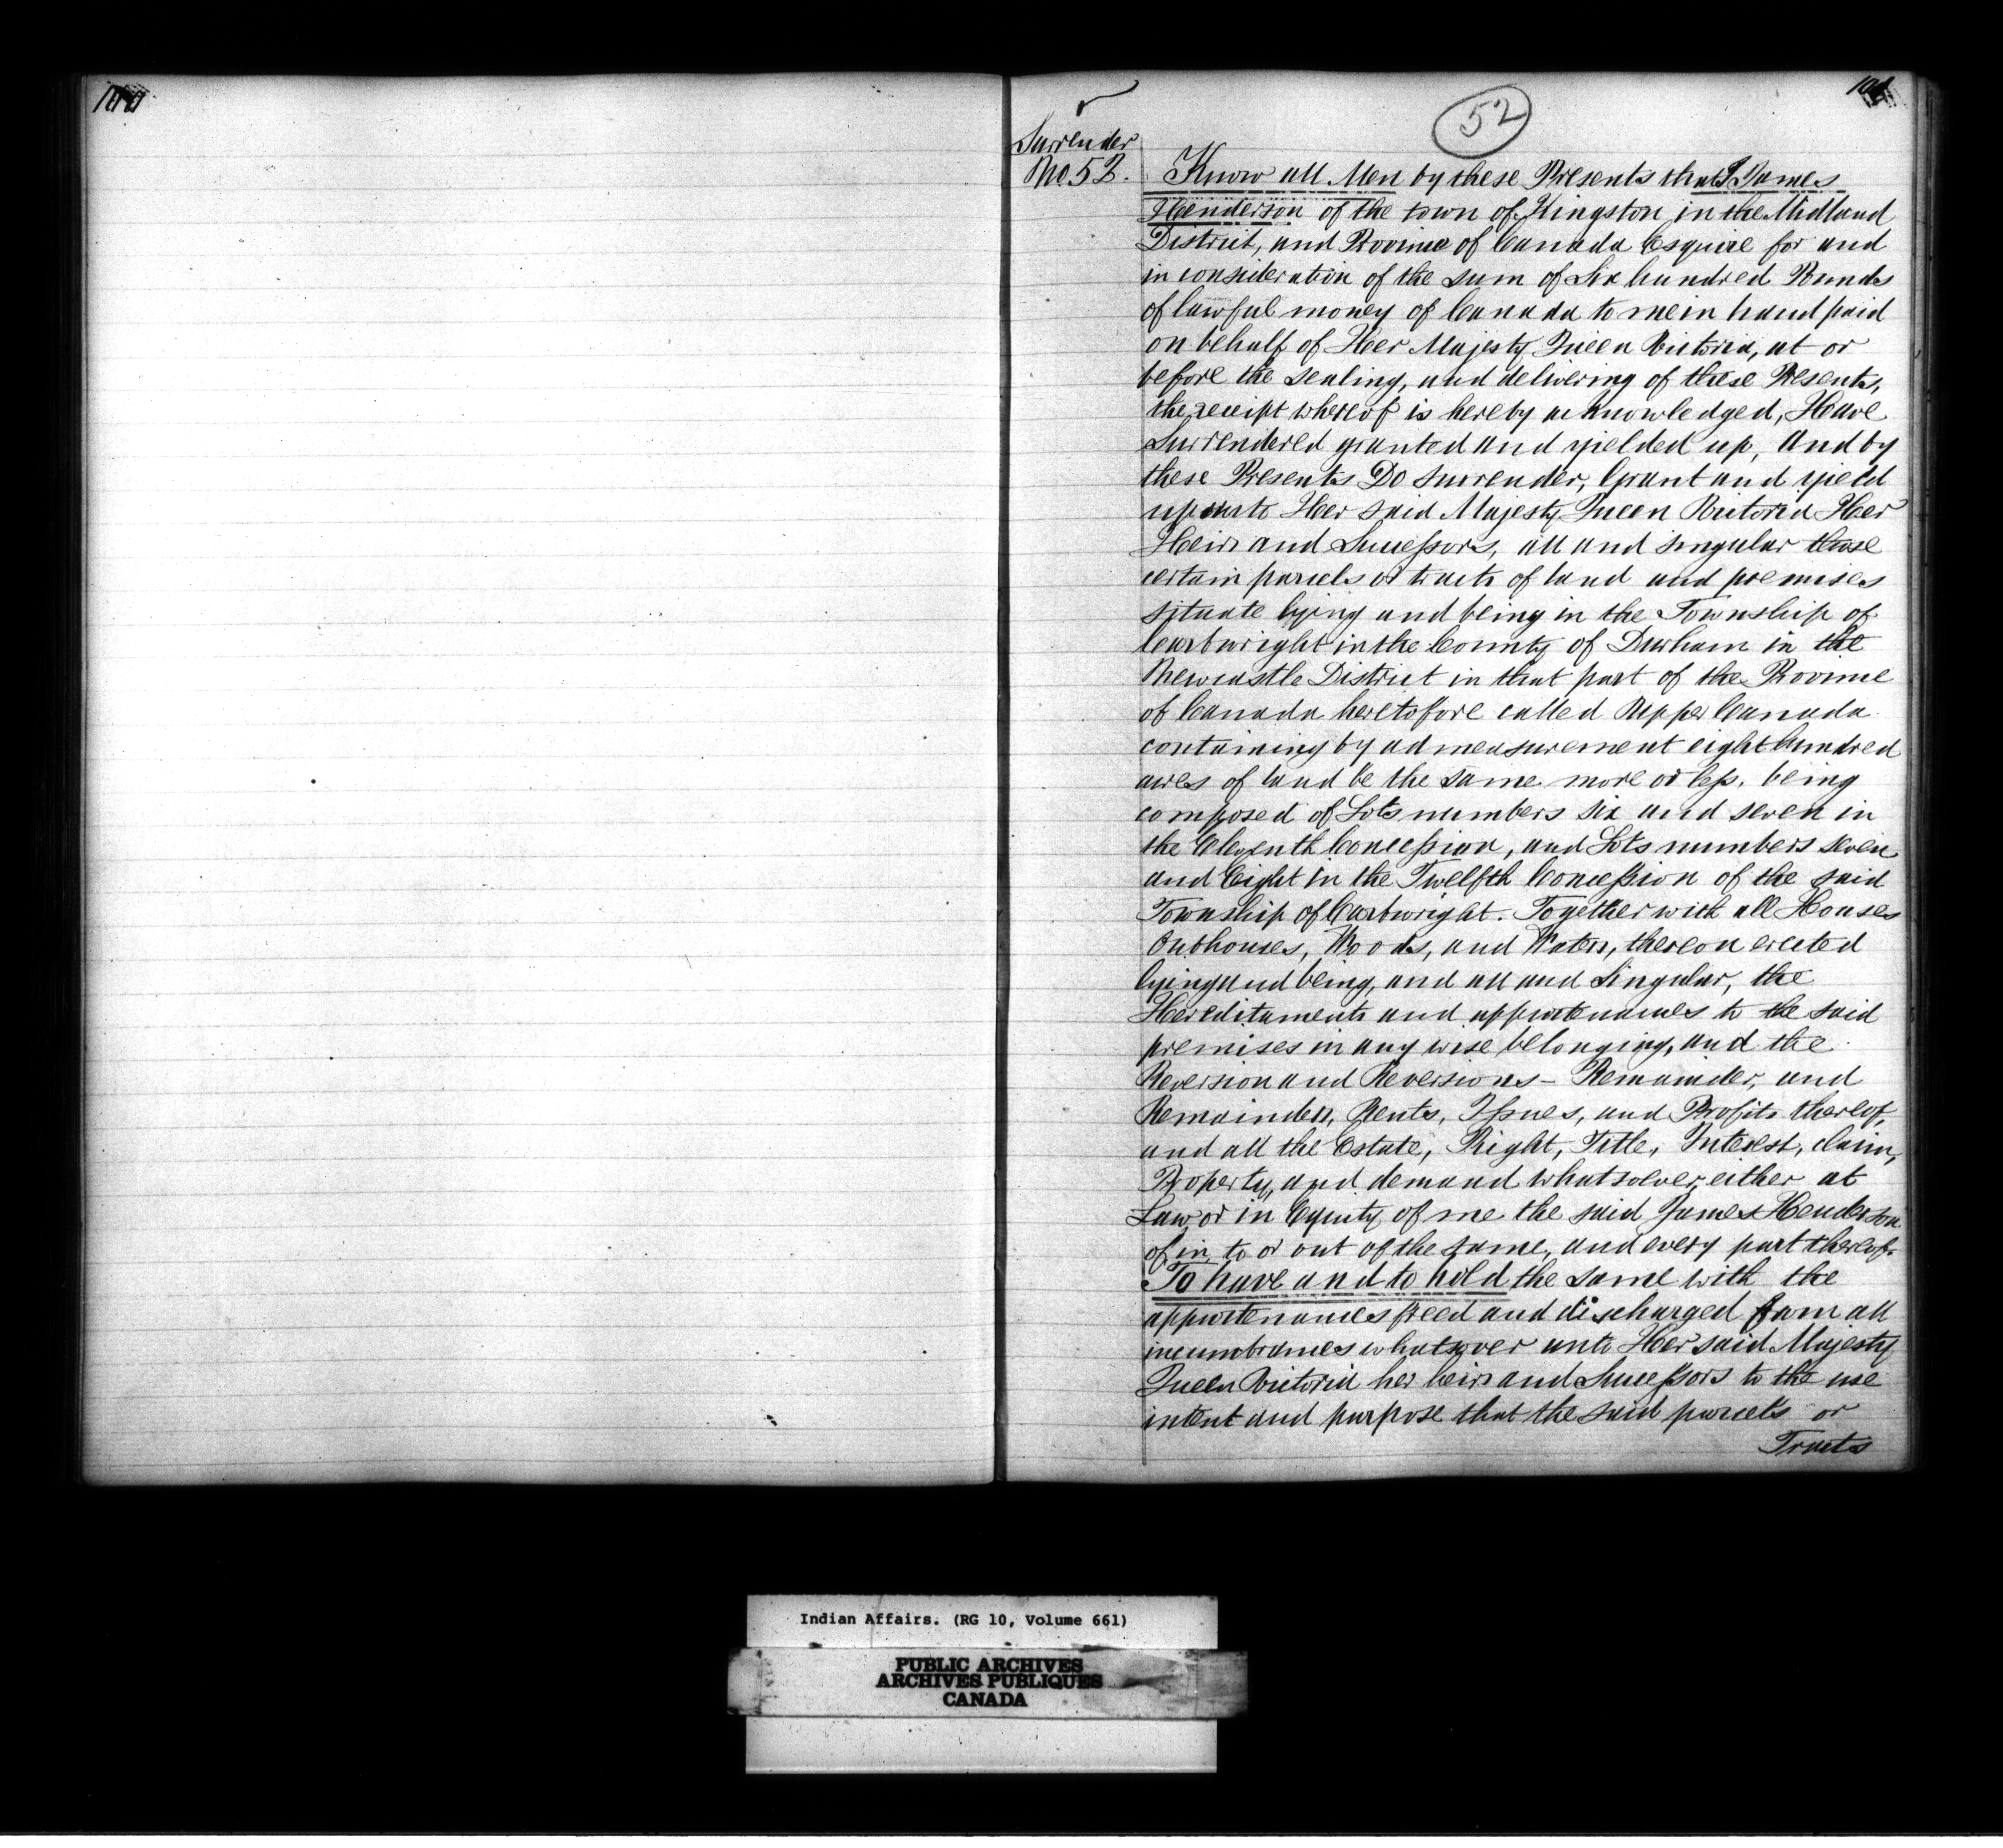 100
101
52
Surrender
No. 52.
Know all Men by these Presents that I James
Henderson of the town of Kingston in the Midland
District, and Province of Canada Esquire for and
in consideration of the sum of Six hundred Pounds
of lawful money of Canada to me in hand paid
on behalf of Her Majesty Queen Victoria, at or
before the sealing, and delivering of these Presents,
the receipt whereof is hereby acknowledged, Have
Surrendered granted and yielded up, and by
these Presents Do surrender, Grant and yield
up unto Her said Majesty Queen Victoria Her
Heirs and Successors, all and singular those
certain parcels or tracts of land and premises
situate lying and being in the Township of
Cartwright in the County of Durham in the
Newcastle District in that part of the Province
of Canada heretofore called Upper Canada
containing by admeasurement eight hundred
acres of land be the same more or less, being
composed of Lots numbers six and seven in
the Eleventh Concession, and Lots numbers seven
and Eight in the Twelfth Concession of the said
Township of Cartwright. Together with all Houses
Outhouses, Woods, and Waters, thereon erected
lying and being, and all and Singular, the
Hereditaments and appurtenances to the said
premises in any wise belonging, and the
Reversion and Reversions - Remainder, and
Remainders, Rents, Issues, and Profits thereof,
and all the Estate, Right, Title, Interest, claim,
Property, and demand whatsoever, either at
Law or in Equity of me the said James Henderson
of in to or out of the same, and every part thereof.
To have and to hold the same with the
appurtenances freed and discharged from all
incumbrances whatsover unto Her said Majesty
Queen Victoria her heirs and Successors to the use
intent and purpose that the said parcels or
Tracts
Indian Affairs. (RG 10, Volume 661)
PUBLIC ARCHIVES
ARCHIVES PUBLIQUES
CANADA